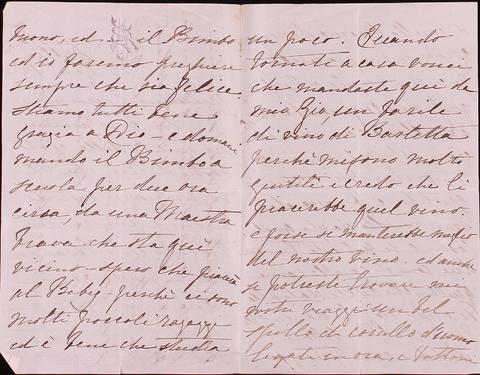 buono, ed il Bimbo
ed io faremo preghiere
sempre che sia felice.
Stiamo tutti bene
grazia a Dio - e domani
mando il Bimbo a
scuola per due ora
circa, da una Maestra
brava che sta qui
vicino - spero che
al Baby - perchè ci sono
molti piccoli ragazzi
ed è bene che studia
un poco. Quando
tornate a casa
che mandaste quì da
mio Zio, un barile
di vino di
perchè mi sono molto
gentili e credo che li
piacerebbe quel vino.
e forse si manterebbe meglio
del nostro vino. ed anche
se potreste trovare nei
vostri viaggi un bel
di cavallo d'uomo